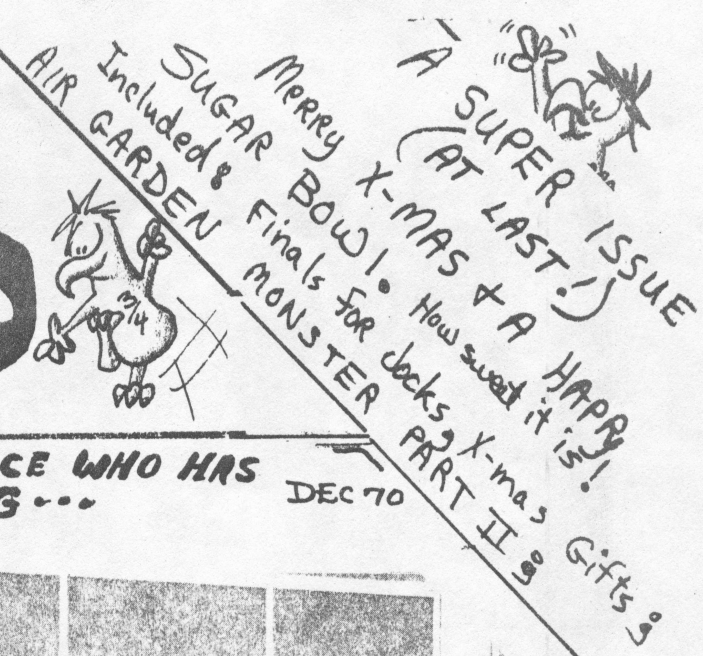 A SUPER ISSUE
(AT LAST!)
MERRY X-MAS + A HAPPY
SUGAR BOWl! How sweet it is!
Included: Finals for Jocks, X-mas Gifts,
AIR GARDEN MONSTER PART II,
3/4
CE WHO HAS
G---
DEC 70